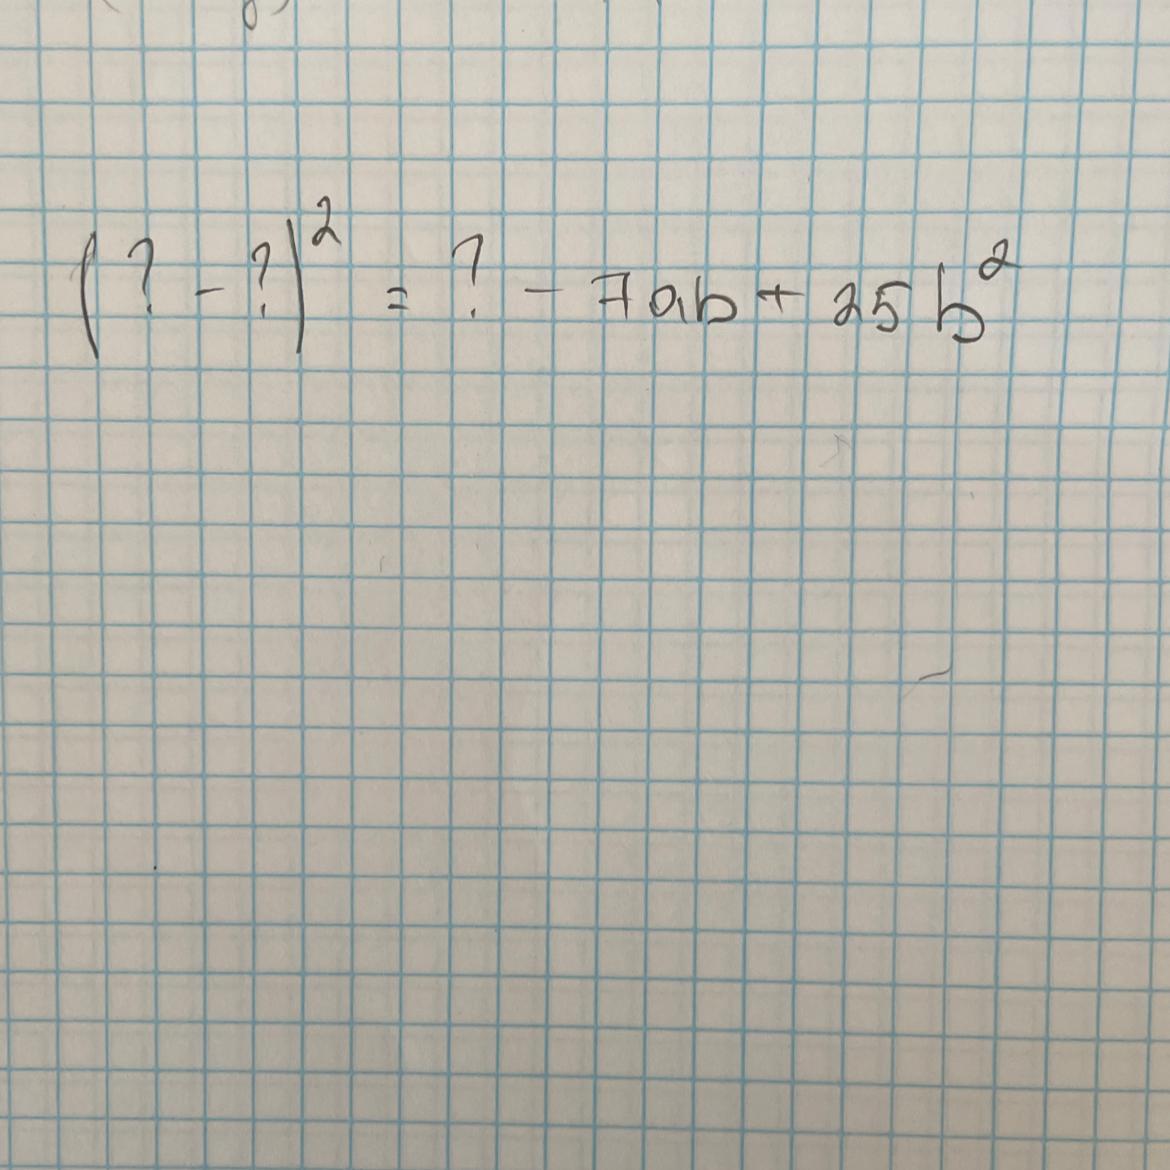 (? - ?)² = ? - 7ab + 25b²